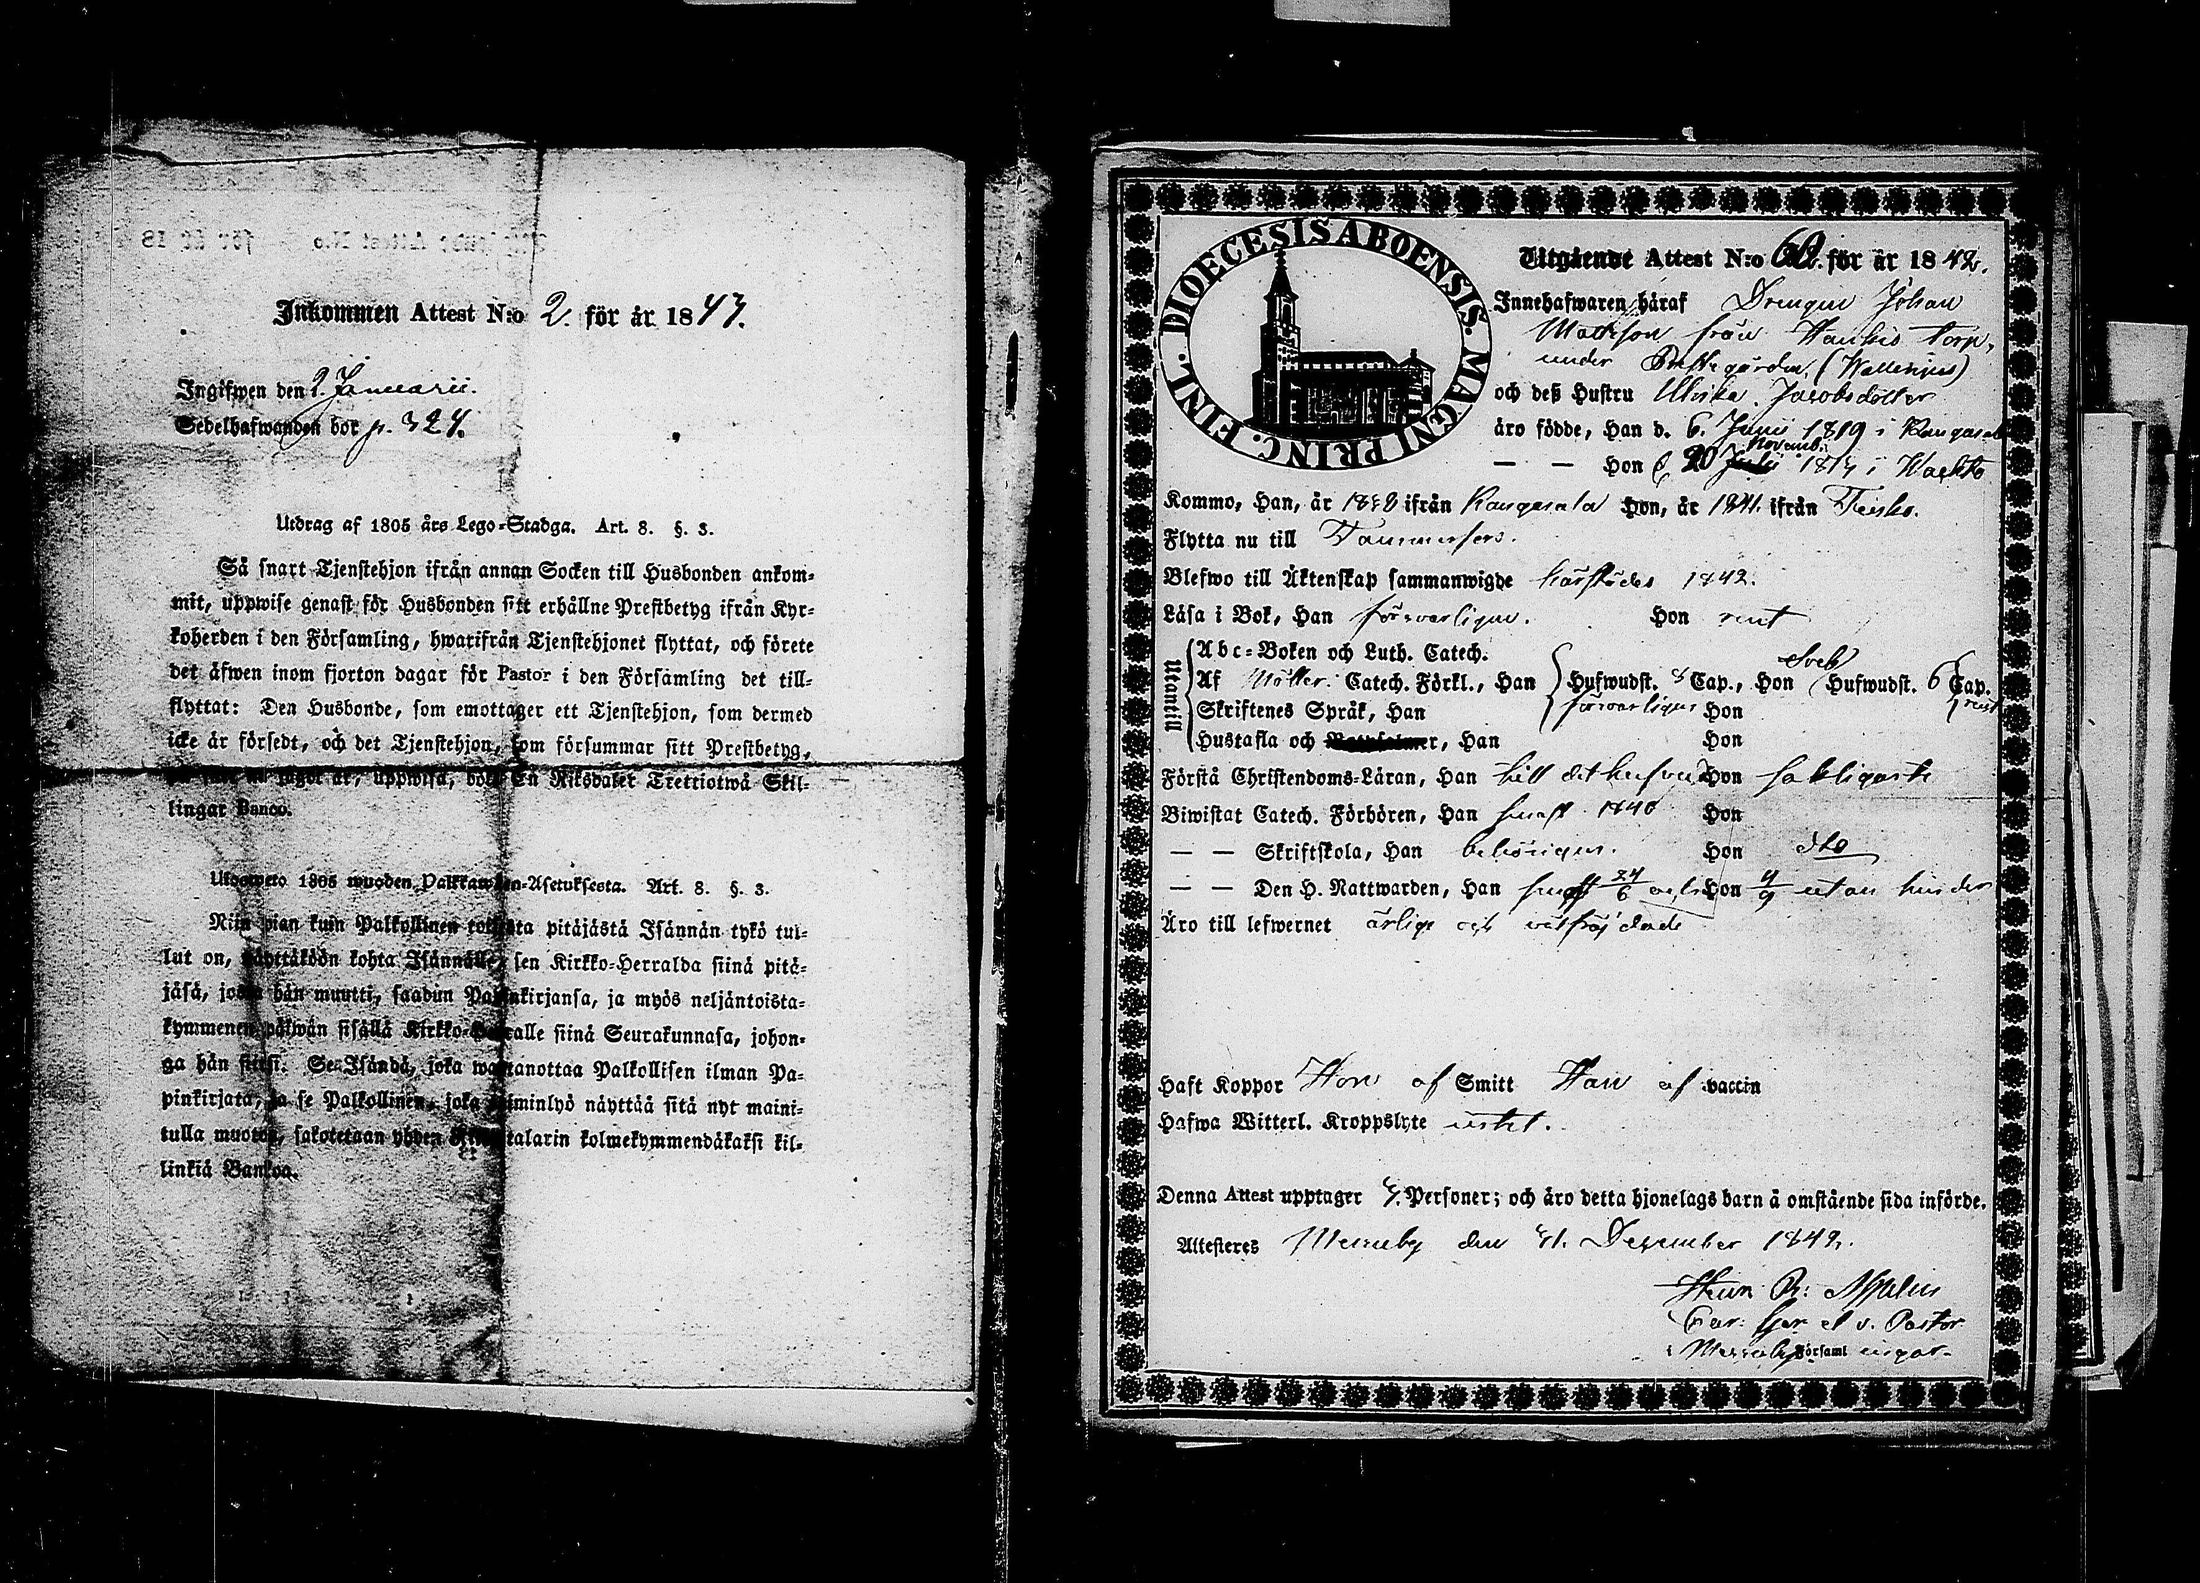 Inkommen Attest N:o 2. för år 1843.
Ingifwen den 2 Januarii.
Sedelhafwanden bor p. 324.
Utdrag af 1805 års Lego-Stadga. Art. 8. §. 3.
Så snart Tjenstehjon ifrån annan Socken till Husbonden ankom-
mit, uppwise genast för Husbonden sitt erhållne Prestbetyg ifrån Kyr-
koherden i den Församling, hwarifrån Tjenstehjonet flyttat, och förete
det äfwen inom fjorton dagar för Pastor i den Församling det till-
flyttat: Den Husbonde, som emottager ett Tjenstehjon, som dermed
icke är försedt, och det Tjenstehjon, som försummar sitt Prestbetyg,
uppwisa, böte En Riksdaler Trettiotwå Skil-
lingar Banco.
Ulosweto 1805 wuoden Palkkawäen-Asetuksesta. Art. 8. §. 3.
Niin pian kuin Palkollinen toisesta pitäjästä Isännän tykö tul-
lut on, näyttäköön kohta Isännälle, sen Kirkko-Herralda siinä pitä-
jäsä, josta hän muutti, saadun Papinkirjansa, ja myös neljäntoista-
kymmenen päiwän sisällä Kirkko-Herralle siinä Seurakunnasa, johon-
ga hän siirsi. Se Isändä, joka wastanottaa Palkollisen ilman Pa-
pinkirjata, ja se Palkollinen, joka laiminlyö näyttää sitä nyt maini-
tulla muotoa, sakotetaan yhden Riksitalarin kolmekymmendäkaksi kil-
linkiä Bankoa.
DIOECESIS ABOENSIS. MAGNI PRINC. FINL.
Utgående Attest N:o 60. för år 1842.
Innehafwaren häraf Drengen Johan
Mattsson från Haukis torp,
under Prestegården, (Wallenius)
och deß Hustru Ulrika Jacobsdotter
äro födde, Han d. 6. Junii 1819 i Kangasala
— — Hon d 20 Novemb: 1813 i Kaekto
Kommo, Han, år 1838 ifrån Kangasala Hon, år 1841. ifrån Teisko.
Flytta nu till Tammerfors.
Blefwo till Äktenskap sammanwigde härstädes 1842.
Läsa i Bok, Han försvarligen. Hon rent
Utantill
Abc-Boken och Luth. Catech.
Af Möller: Catech. Förkl., Han Hufwudst. & Cap., Hon Sveb Hufwudst. 6 Cap.
Skriftenes Språk, Han försvarligen Hon rent
Hustafla och Han Hon
Förstå Christendoms-Läran, Han till dithufvud Hon hakligaste
Biwistat Catech. Förhören, Han senast 1840 Hon
— — Skriftskola, Han behörigen. Hon dto
— — Den H. Nattwarden, Han senast 24/6 och Hon 4/9 utan hinder
Äro till lefwernet ärlige och wälfräjdade
Haft Koppor Hon af Smitt Han af vaccin
Hafwa Witterl. Kroppslyte intet.
Denna Attest upptager 3. Personer; och äro detta hjonelags barn å omstående sida införde.
Attesteres Messuby den 31. December 1842.
i Messuby Församl